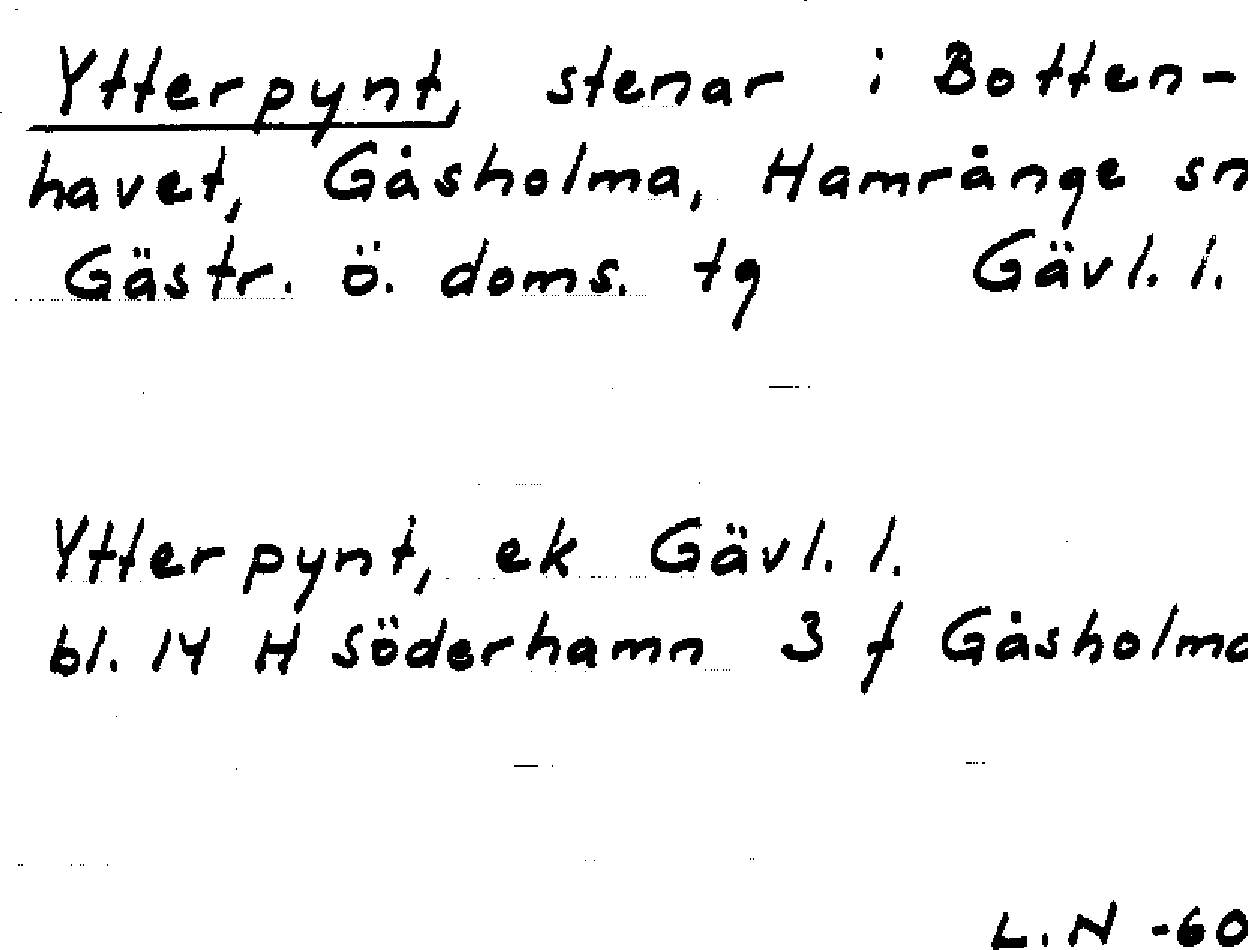 Ytterpynt, stenar i Botten-
havet, Gåsholma, Hamrånge sn
Gästr. ö. doms. tg Gävl. l.
Ytterpynt, ek Gävl. l.
bl. 14 H Söderhamn 3 f Gåsholma
L. N -60